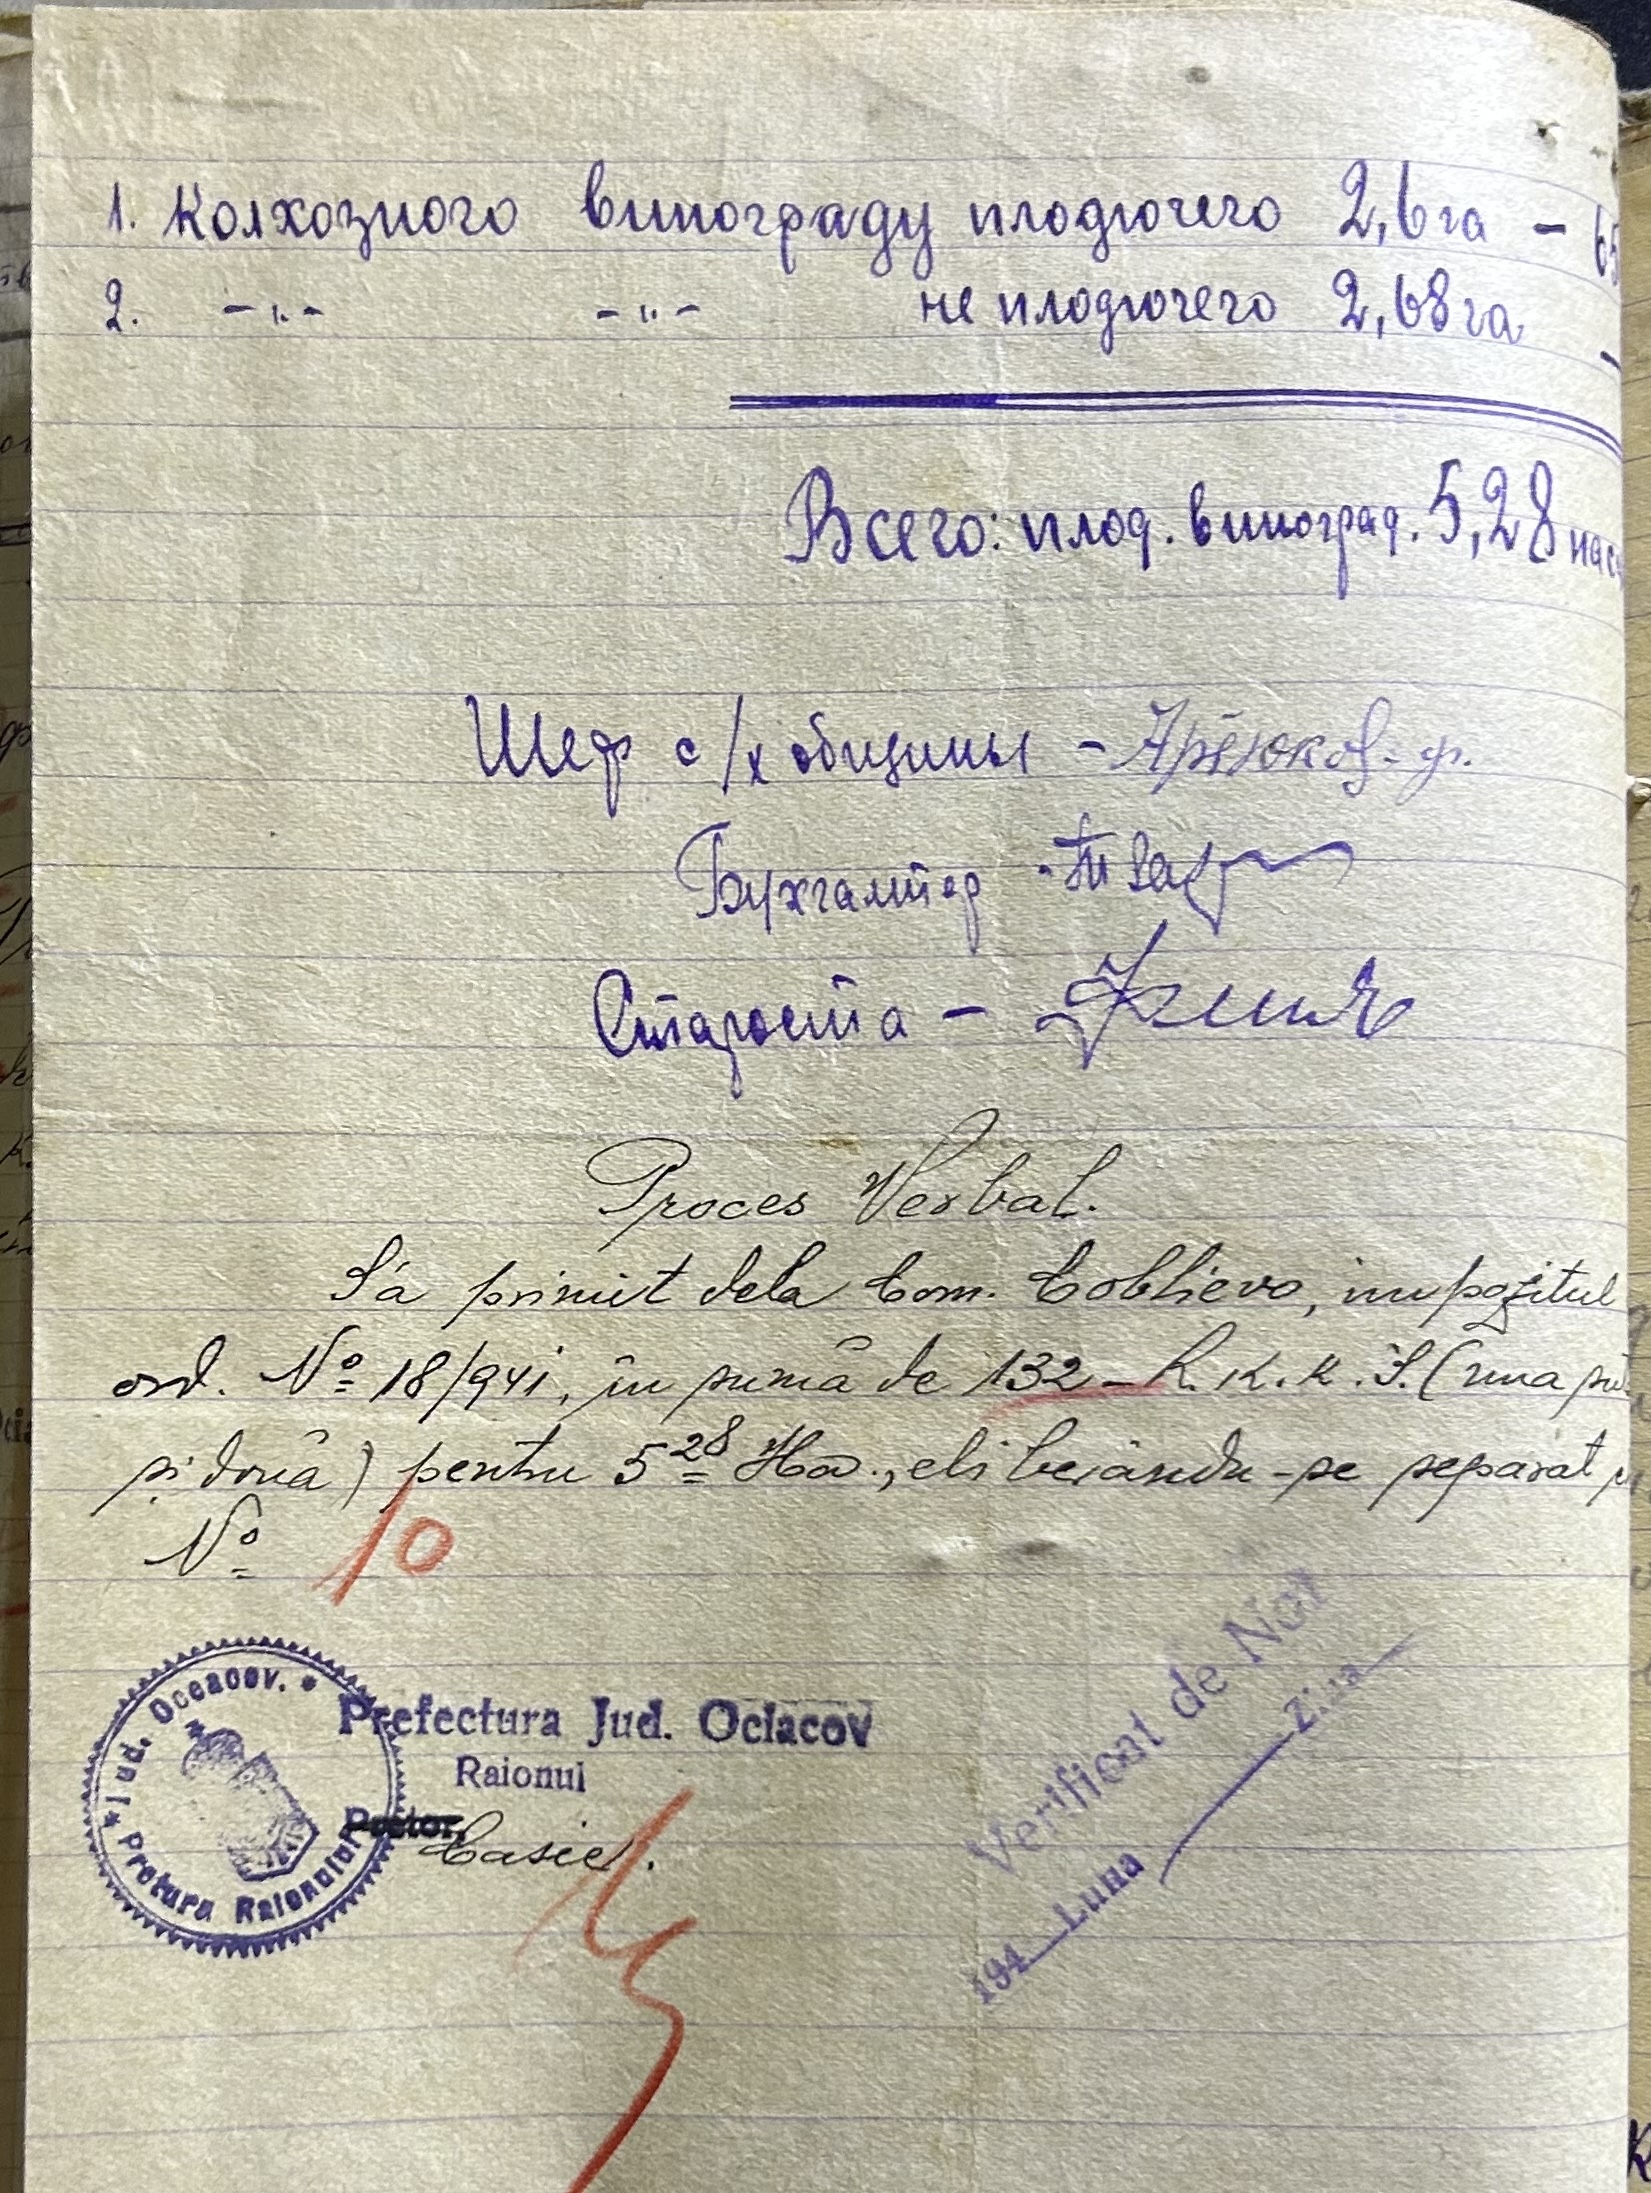 1. Колхозного винограду плодючего 2,6 га –
2. –"– –"– не плодючего 2,68 га –
Всего: плод. виноград. 5,28
Шеф с/х общины –
Бухгалтер
Староста –
Proces Verbal.
S'a primit dela Com. Coblievo, impozitul
ord. No 18/941, în sumă de 132 – R.K.K.S. (una
și două) pentru 5 28 Ha., eliberându-se separat
No 10
Jud. Oceacov.
Pretura Raionului
Prefectura Jud. Ociacov
Raionul
Pretor,
Casier.
Verificat de Noi
194 Luna Ziua